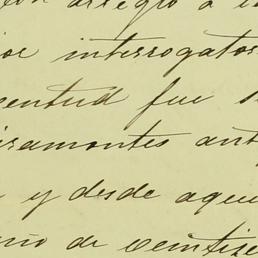 con arreglo a l
or interrogator
entud fue
iramontes ant
y desde aque
año de veintise